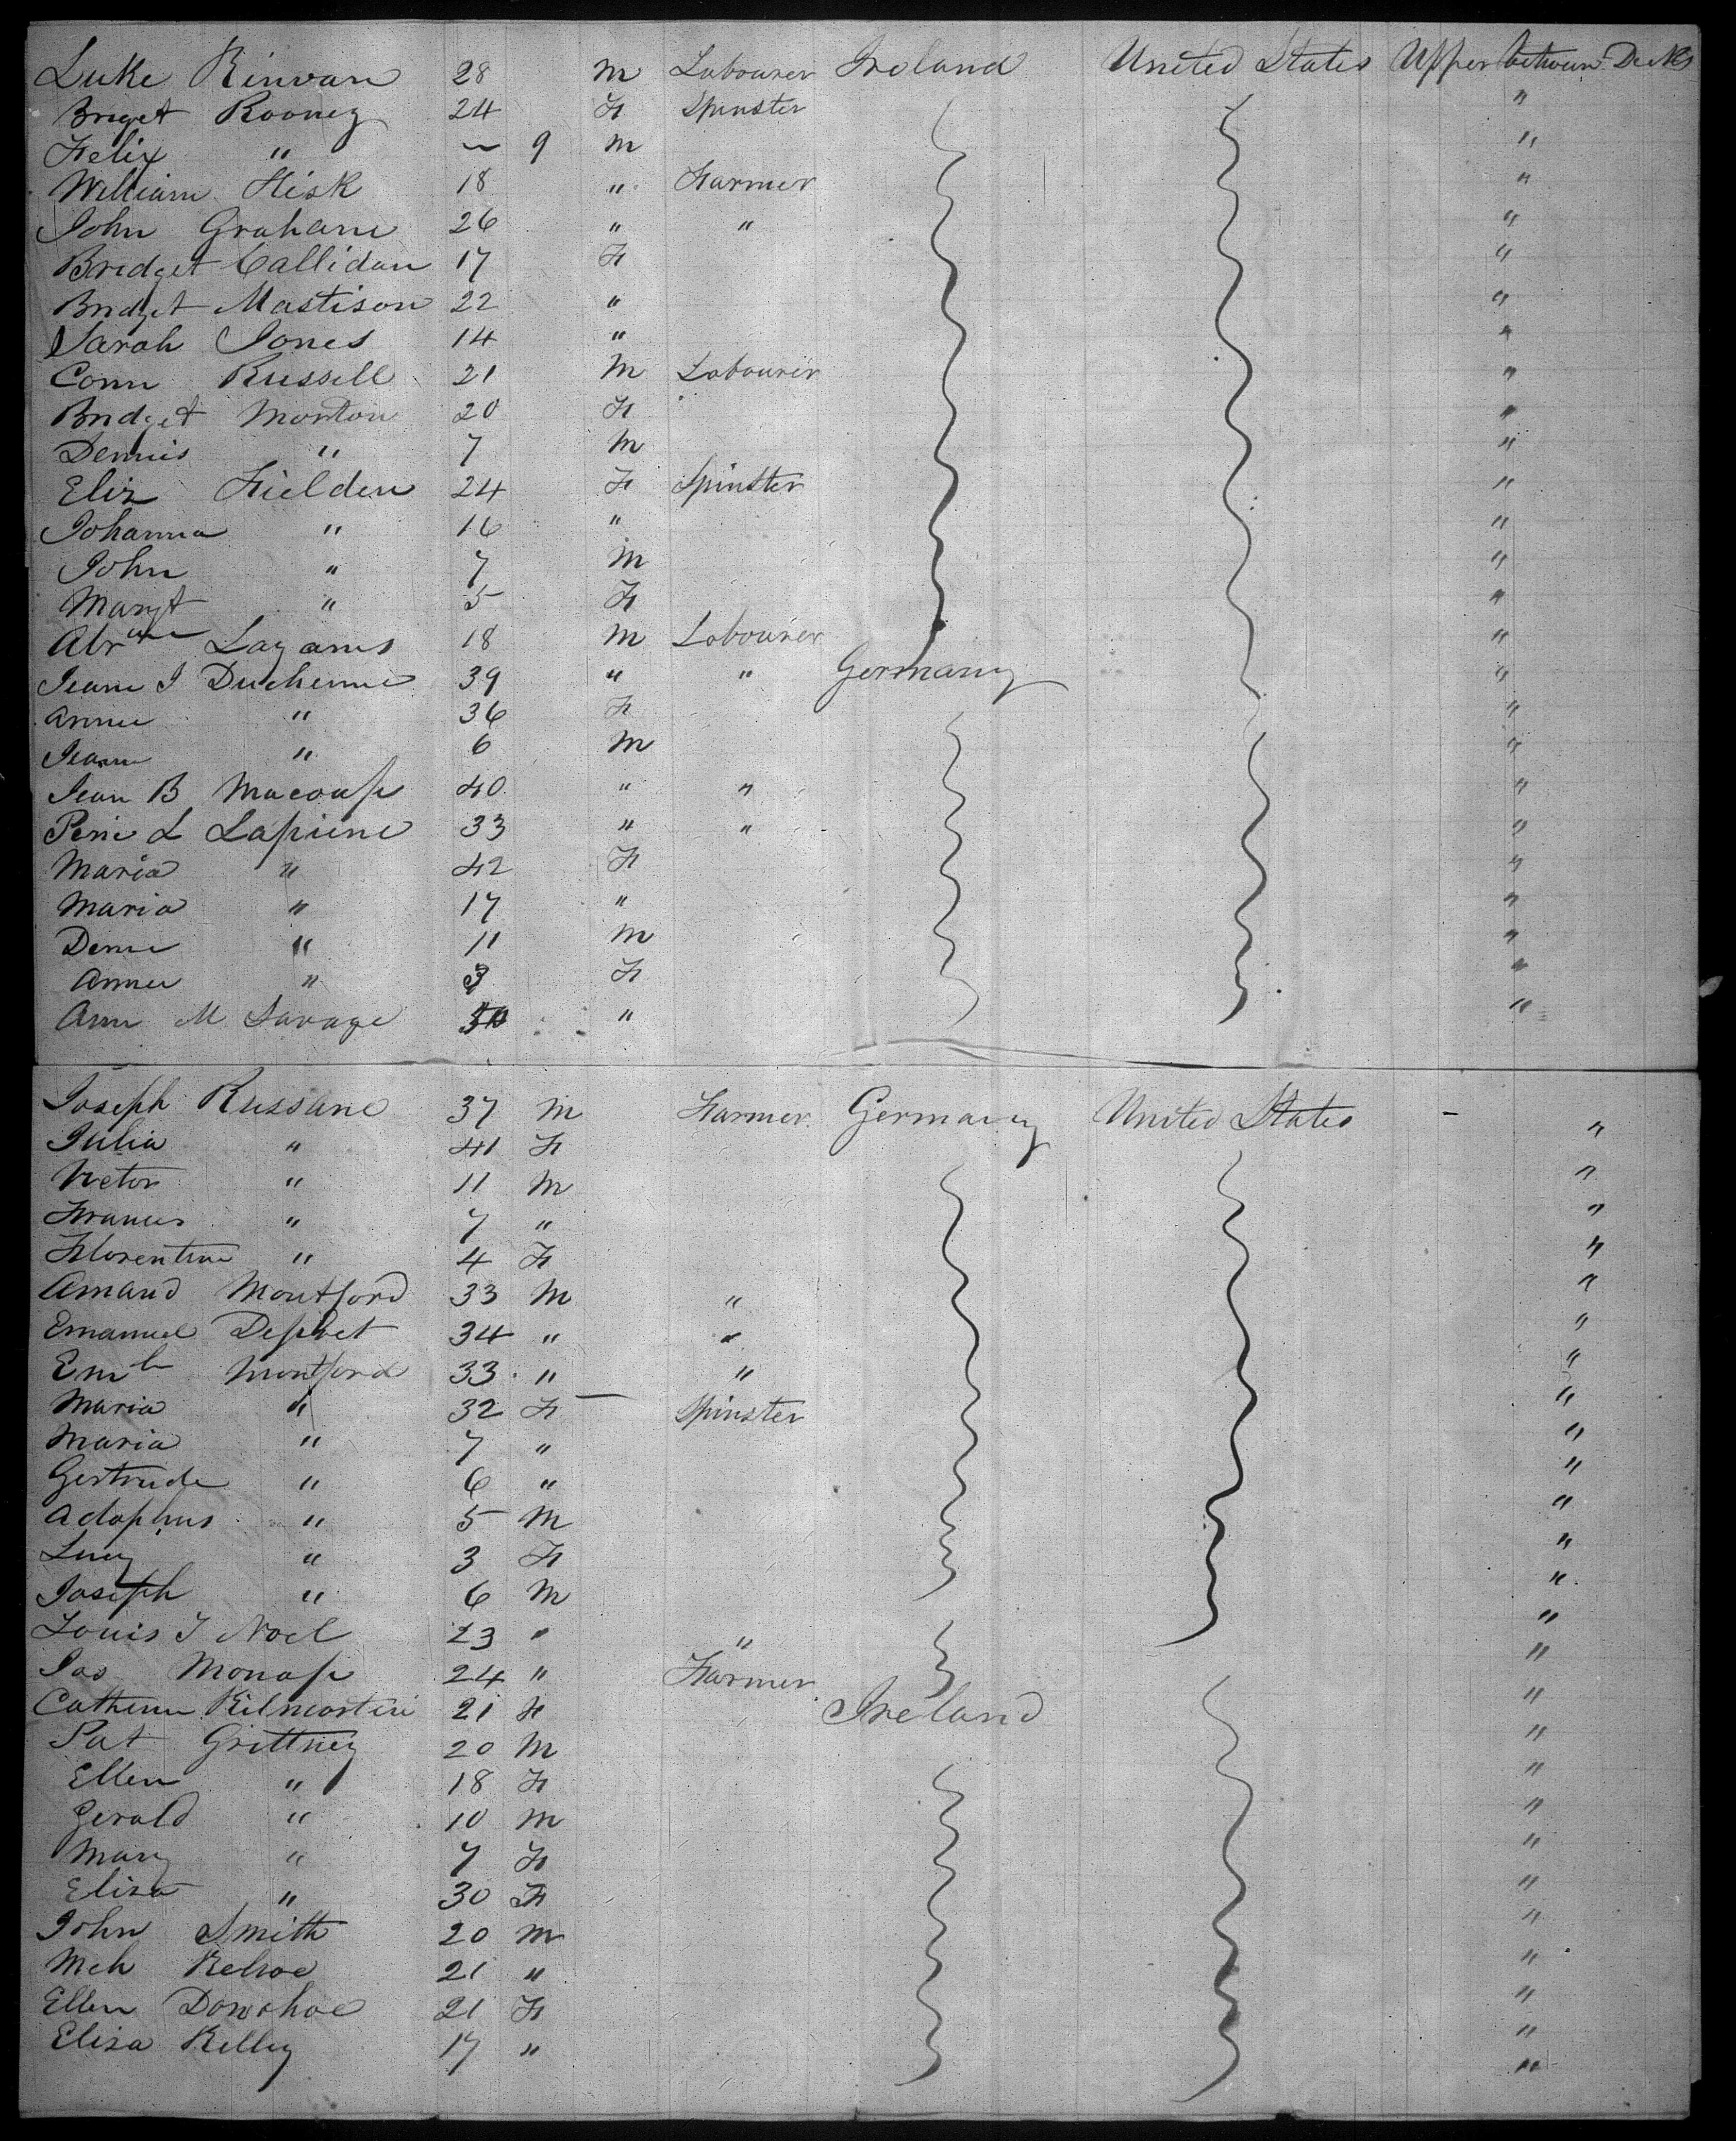 Luke Kinvan 28 M Labourer Ireland United States Upper between Decks
Briget Rooney 24 F Spinster "
Felix " ~ 9 M "
William Fisk 18 " Farmer "
John Graham 26 " " "
Bridget Callidan 17 F "
Bridget Mastison 22 " "
Sarah Jones 14 " "
Conn Russell 21 M Labourer "
Bridget Monton 20 F "
Dennis " 7 M "
Eliz Fielden 24 F Spinster "
Johanna " 16 " "
John " 7 M "
Margt " 5 F "
Abrm Lazarus 18 M Labourer "
Jean J Duchenne 39 " " Germany "
Annie " 36 F "
Jean " 6 M "
Jean B 40 " " "
L Lapierre 33 " " "
Maria " 42 F "
Maria " 17 " "
" 11 M "
Annie " 3 F "
Ann M Savage " "
Joseph Russane 37 M Farmer Germany United States - "
Julia " 41 F "
Victor " 11 M "
Francis " 7 " "
Florentine " 4 F "
Amand Montford 33 M " "
Emanuel 34 " " "
Eml Montford 33 " " "
Maria " 32 F Spinster "
Maria " 7 " "
Gertrude " 6 " "
Adolphus " 5 M "
Lucy " 3 F "
Joseph " 6 M "
Louis J Noel 23 " " "
Jas 24 " Farmer "
Catherine Kilmartin 21 F Ireland "
Pat Grittney 20 M "
Ellen " 18 F "
Gerald " 10 M "
Mary " 7 F "
Eliza " 30 F "
John Smith 20 M "
Mch Kehoe 21 " "
Ellen Donohoe 21 F "
Eliza Kelley 17 " "